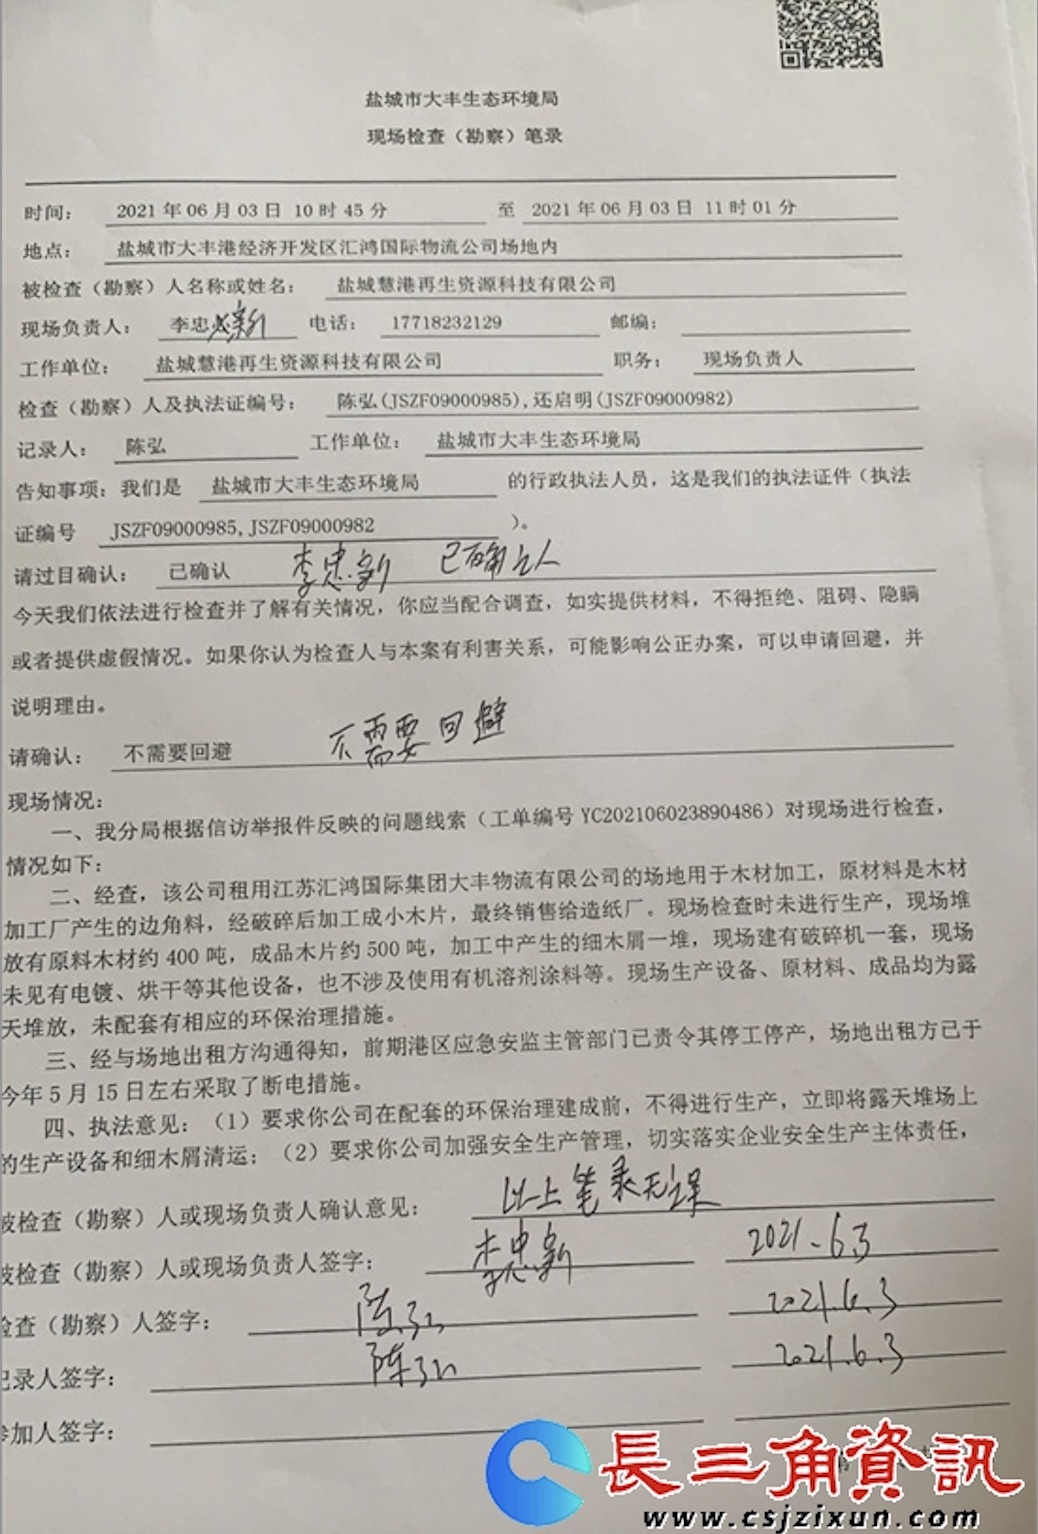 盐城市大丰生态环境局
现场检查（勘察）笔录
时间： 2021 年 06 月 03 日 10 时 45 分 至 2021 年 06 月 03 日 11 时 01 分
地点： 盐城市大丰港经济开发区汇鸿国际物流公司场地内
被检查（勘察）人名称或姓名： 盐城慧港再生资源科技有限公司
现场负责人： 李忠新 电话： 17718232129 邮编：
工作单位： 盐城慧港再生资源科技有限公司 职务： 现场负责人
检查（勘察）人及执法证编号： 陈弘(JSZF09000985),还启明(JSZF09000982)
记录人： 陈弘 工作单位： 盐城市大丰生态环境局
告知事项：我们是 盐城市大丰生态环境局 的行政执法人员，这是我们的执法证件（执法
证编号 JSZF09000985,JSZF09000982 ）。
请过目确认： 已确认 李忠新 已确认
今天我们依法进行检查并了解有关情况，你应当配合调查，如实提供材料，不得拒绝、阻碍、隐瞒
或者提供虚假情况。如果你认为检查人与本案有利害关系，可能影响公正办案，可以申请回避，并
说明理由。
请确认： 不需要回避 不需要回避
现场情况：
一、我分局根据信访举报件反映的问题线索（工单编号 YC202106023890486）对现场进行检查，
情况如下：
二、经查，该公司租用江苏汇鸿国际集团大丰物流有限公司的场地用于木材加工，原材料是木材
加工厂产生的边角料，经破碎后加工成小木片，最终销售给造纸厂。现场检查时未进行生产，现场堆
放有原料木材约 400 吨，成品木片约 500 吨，加工中产生的细木屑一堆，现场建有破碎机一套，现场
未见有电镀、烘干等其他设备，也不涉及使用有机溶剂涂料等。现场生产设备、原材料、成品均为露
天堆放，未配套有相应的环保治理措施。
三、经与场地出租方沟通得知，前期港区应急安监主管部门已责令其停工停产，场地出租方已于
今年 5 月 15 日左右采取了断电措施。
四、执法意见：（1）要求你公司在配套的环保治理建成前，不得进行生产，立即将露天堆场上
的生产设备和细木屑清运；（2）要求你公司加强安全生产管理，切实落实企业安全生产主体责任，
被检查（勘察）人或现场负责人确认意见： 以上笔录无误
被检查（勘察）人或现场负责人签字： 李忠新 2021.6.3
检查（勘察）人签字： 陈弘 2021.6.3
记录人签字： 陈弘 2021.6.3
参加人签字：
長三角資訊
www.csjzixun.com